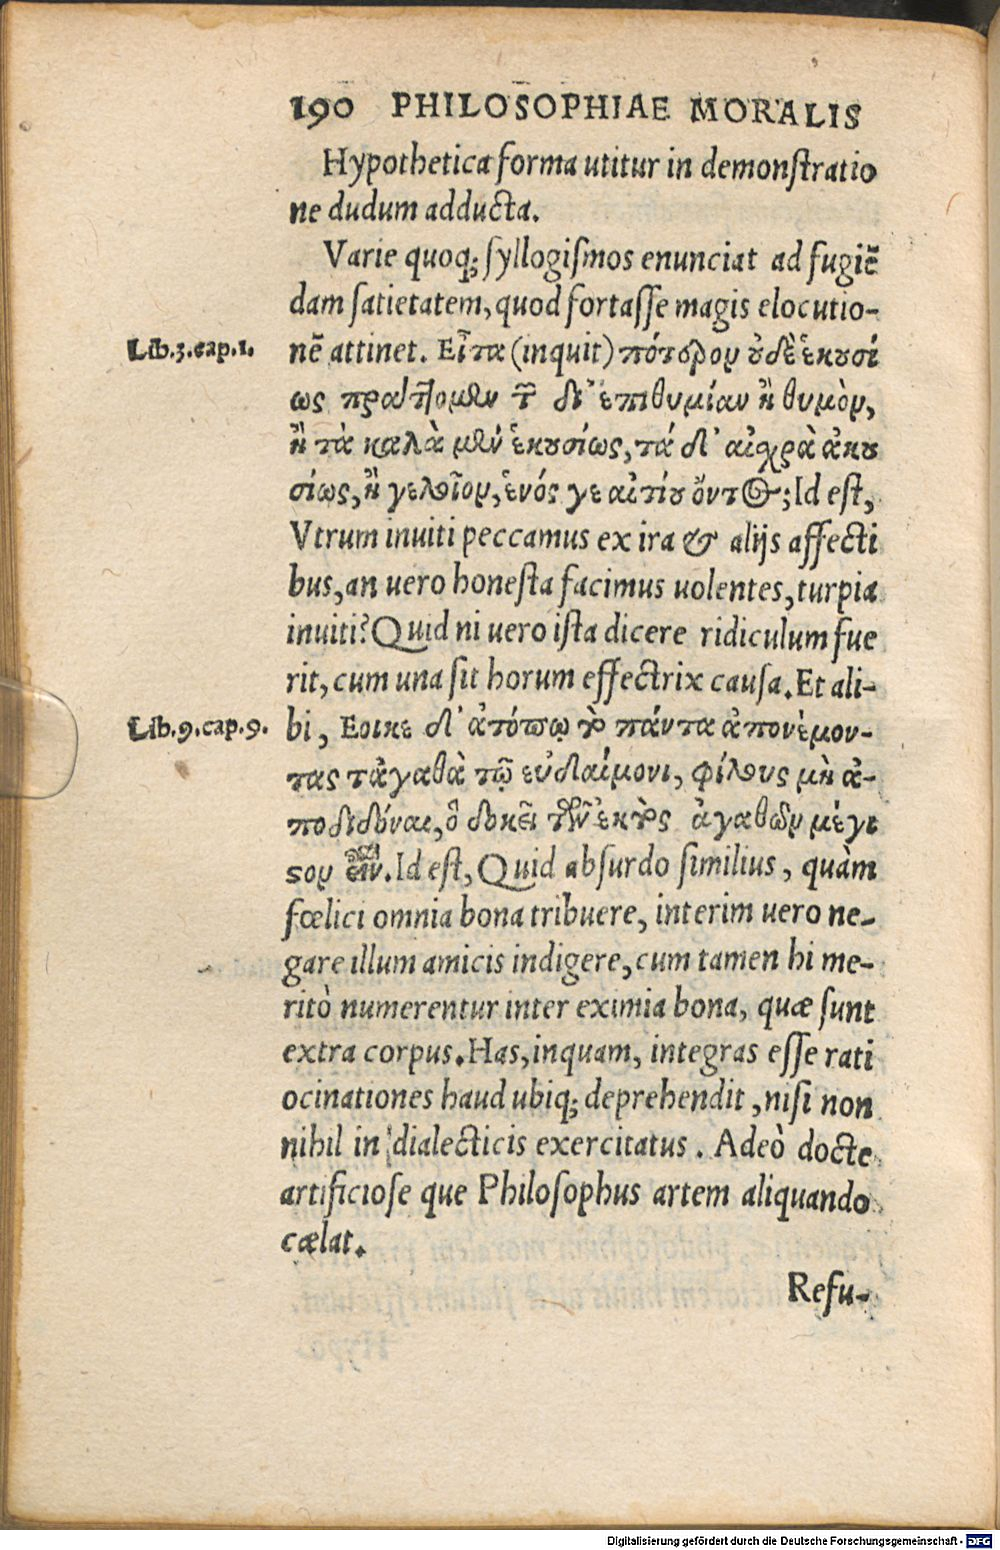 190 PHILOSOPHIAE MORALIS
Hypothetica forma utitur in demonstratio
ne dudum adducta.
Varie quoq; syllogismos enunciat ad fugiē
dam satietatem, quod fortasse magis elocutio-
Lib.3.cap.1.
nē attinet. Εἶτα (inquit) πότερον ȣ̓δὲ ἑκȣσί
ως πράττομεν τ δι᾽ ἐπιθυμίαν ἢ θυμὸν,
ἢ τὰ καλὰ μὲν ἑκȣσίως, τά δ᾽ αἰχρὰ ἀκȣ
σίως, ἢ γελοῖον, ἑνός γε αἰτίȣ ὄντος; Id est,
Vtrum inuiti peccamus ex ira & alijs affecti
bus, an uero honesta facimus uolentes, turpia
inuiti? Quid ni uero ista dicere ridiculum fue
rit, cum una sit horum effectrix causa. Et ali-
Lib.9.cap.9.
bi, Εοικε δ᾽ ἀτόπῳ τὸ πάντα ἀπονέμον-
τας τἀγαθὰ τῷ εὐδαίμονι, φίλους μὴ ἀ-
ποδιδόναι, ὃ δοκεῖ τῶν ἐκτὸς ἀγαθῶν μέγι
ϛον εἶν. Id est, Quid absurdo similius, quàm
fœlici omnia bona tribuere, interim uero ne-
gare illum amicis indigere, cum tamen hi me-
ritò numerentur inter eximia bona, quæ sunt
extra corpus. Has, inquam, integras esse rati
ocinationes haud ubiq; deprehendit, nisi non
nihil in dialecticis exercitatus. Adeò docte
artificiose que Philosophus artem aliquando
cælat.
Refu-
Digitalisierung gefördert durch die Deutsche Forschungsgemeinschaft - DFG